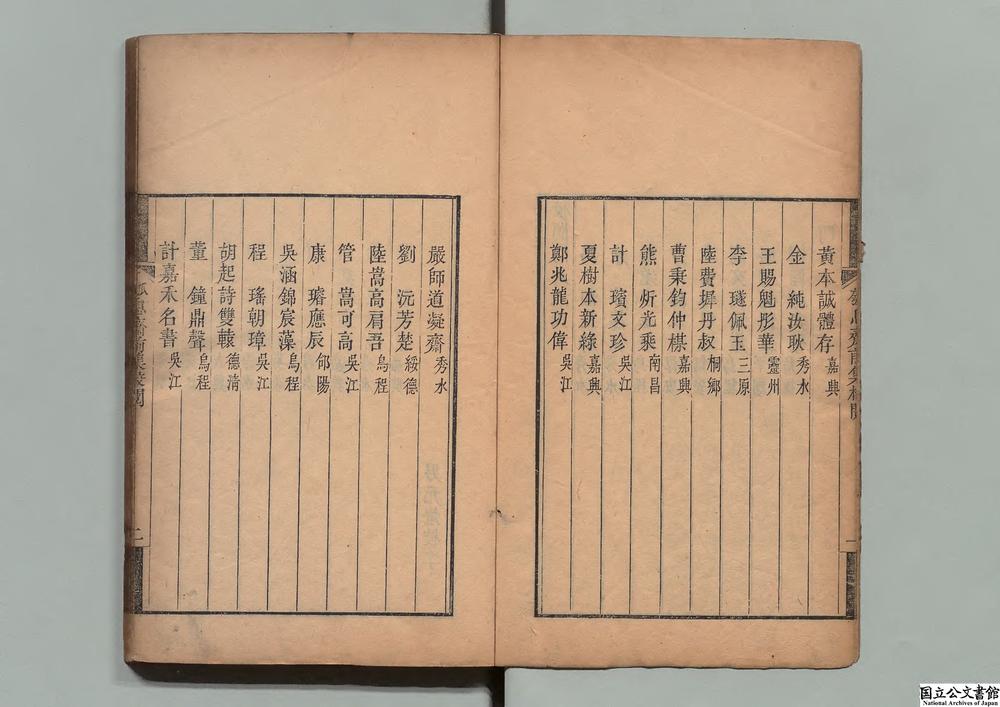 黃本誠體存 嘉興
金 純汝耿 秀水
王賜魁彤華 靈州
李 璲佩玉 三原
陸費墀丹叔 桐鄉
曹秉鈞仲楳 嘉興
熊 炘光乘 南昌
計 璸文珍 吳江
夏樹本新綠 嘉興
鄭兆龍功偉 吳江
一
嚴師道凝齋 秀水
劉 沅芳椘 綏德
陸嵩高肩吾 烏程
管 嵩可高 吳江
康 瑃應辰 郃陽
吳涵錦宸藻 烏程
程 瑤朝璋 吳江
胡起詩雙轅 德清
董 鐘鼎聲 烏程
計嘉禾名書 吳江
二
国立公文書館
National Archives of Japan